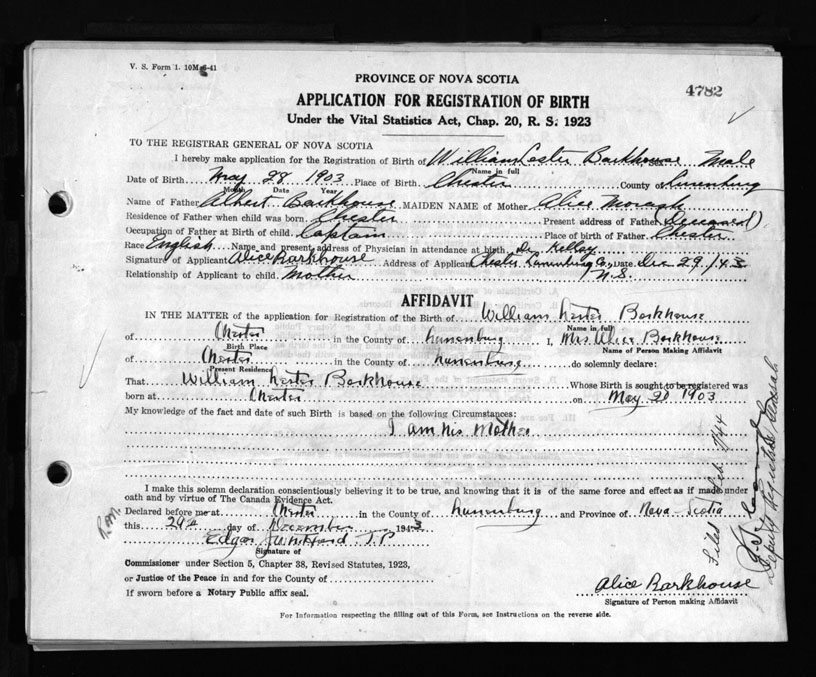 V. S. Form 1. 10M-6-41
4782
PROVINCE OF NOVA SCOTIA
APPLICATION FOR REGISTRATION OF BIRTH
Under the Vital Statistics Act, Chap. 20, R. S. 1923
TO THE REGISTRAR GENERAL OF NOVA SCOTIA
I hereby make application for the Registration of Birth of William Lester Barkhouse Sex Male
Name in full
Date of Birth May 28 1903 Place of Birth Chester County Lunenburg
Month Date Year
Name of Father Albert Barkhouse MAIDEN NAME of Mother Alice Morash
Residence of Father when child was born Chester Present address of Father (Deceased)
Occupation of Father at Birth of child Captain Place of birth of Father Chester
Race English Name and present address of Physician in attendance at birth Dr Kelley
Signature of Applicant Alice Barkhouse Address of Applicant Chester Lunenburg Co., Date Dec 29/43
N.S.
Relationship of Applicant to child Mother
AFFIDAVIT
IN THE MATTER of the application for Registration of the Birth of William Lester Barkhouse
Name in full
of Chester in the County of Lunenburg I, Mrs Alice Barkhouse
Birth Place Name of Person Making Affidavit
of Chester in the County of Lunenburg do solemnly declare:
Present Residence
That William Lester Barkhouse Whose Birth is sought to be registered was
born at Chester on May 28 1903
My knowledge of the fact and date of such Birth is based on the following Circumstances:
I am his Mother
I make this solemn declaration conscientiously believing it to be true, and knowing that it is of the same force and effect as if made under
oath and by virtue of The Canada Evidence Act.
Declared before me at Chester in the County of Lunenburg and Province of Nova-Scotia
this 29th day of December 1943
Edgar J.P
Signature of
Commissioner under Section 5, Chapter 38, Revised Statutes, 1923,
or Justice of the Peace in and for the County of
If sworn before a Notary Public affix seal.
Alice Barkhouse
Signature of Person making Affidavit
For Information respecting the filling out of this Form, see Instructions on the reverse side.
Filed Feb 1944
Deputy Registrar General